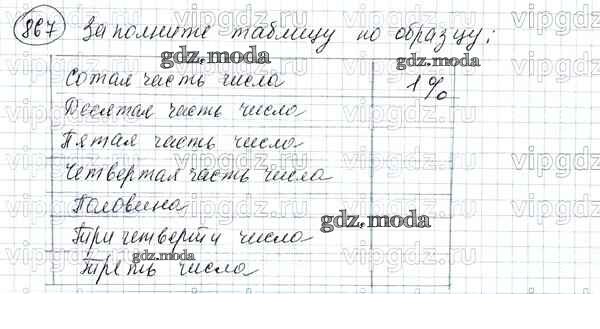 867 Заполните таблицу по образцу:
gdz.moda
Сотая часть числа 1%
Десятая часть числа
Пятая часть числа
Четвертая часть числа
Половина
gdz.moda
Три четверти числа
gdz.moda
Треть числа